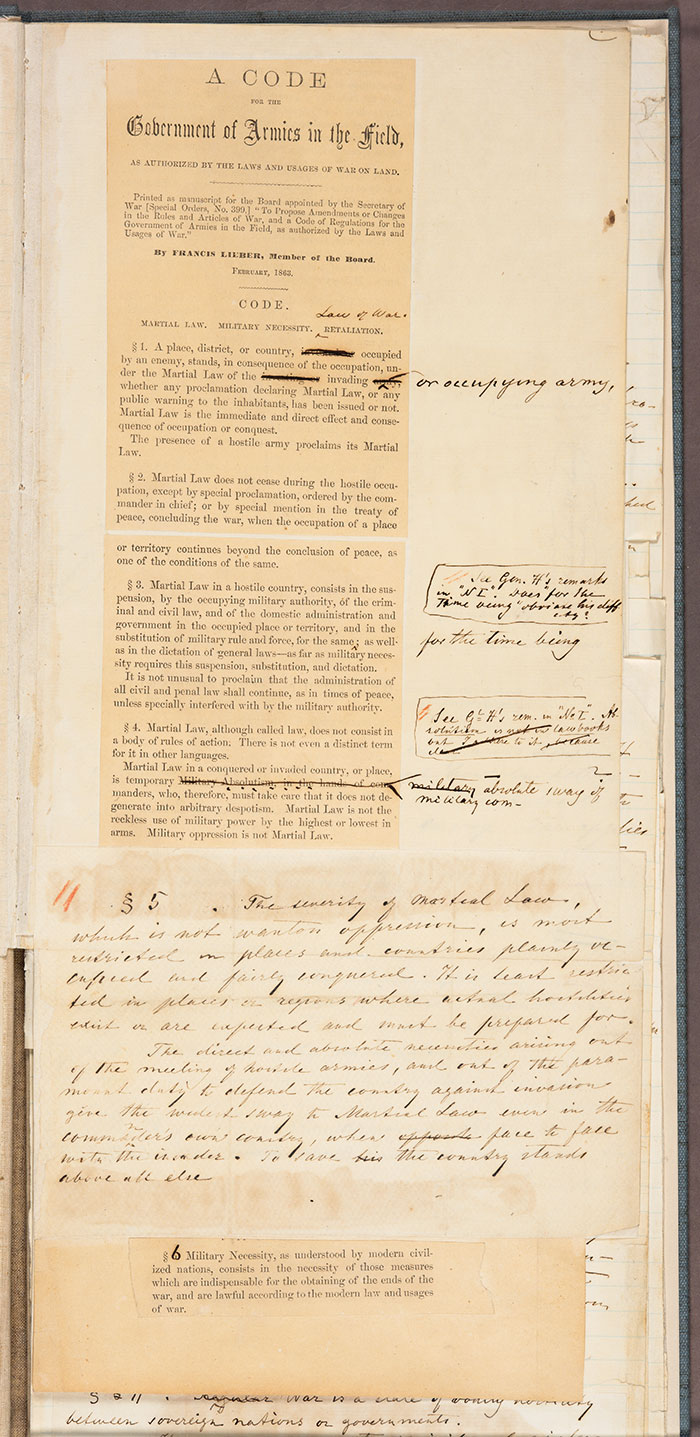 A CODE
FOR THE
Government of Armies in the Field,
AS AUTHORIZED BY THE LAWS AND USAGES OF WAR ON LAND.
Printed as manuscript for the Board appointed by the Secretary of
War [Special Orders, No. 399.] "To Propose Amendments or Changes
in the Rules and Articles of War, and a Code of Regulations for the
Government of Armies in the Field, as authorized by the Laws and
Usages of War."
By FRANCIS LIEBER, Member of the Board.
FEBRUARY, 1863.
CODE.
Law of War.
MARTIAL LAW. MILITARY NECESSITY. RETALIATION.
§ 1. A place, district, or country, occupied
by an enemy, stands, in consequence of the occupation, un-
der the Martial Law of the invading
or occupying army,
whether any proclamation declaring Martial Law, or any
public warning to the inhabitants, has been issued or not.
Martial Law is the immediate and direct effect and conse-
quence of occupation or conquest.
The presence of a hostile army proclaims its Martial
Law.
§ 2. Martial Law does not cease during the hostile occu-
pation, except by special proclamation, ordered by the com-
mander in chief; or by special mention in the treaty of
peace, concluding the war, when the occupation of a place
or territory continues beyond the conclusion of peace, as
one of the conditions of the same.
§ 3. Martial Law in a hostile country, consists in the sus-
pension, by the occupying military authority, of the crim-
inal and civil law, and of the domestic administration and
government in the occupied place or territory, and in the
substitution of military rule and force, for the same; as well
as in the dictation of general laws—as far as military neces-
sity requires this suspension, substitution, and dictation.
It is not unusual to proclaim that the administration of
all civil and penal law shall continue, as in times of peace,
unless specially interfered with by the military authority.
See Gen. H's remarks
in "No I". Does for the
time being obviate his diff
for the time being
§ 4. Martial Law, although called law, does not consist in
a body of rules of action. There is not even a distinct term
for it in other languages.
Martial Law in a conquered or invaded country, or place,
is temporary Military Absolutism, in the hands of com-
manders, who, therefore, must take care that it does not de-
generate into arbitrary despotism. Martial Law is not the
reckless use of military power by the highest or lowest in
arms. Military oppression is not Martial Law.
See Gl H's rem. in "No I". Ab-
solutism is not in lawbooks
but to it, because
military absolute sway of
military com-
§ 5. The severity of Martial Law,
which is not wanton oppression, is most
restricted in places and countries plainly oc-
cupied and fairly conquered. It is least restric-
ted in places or regions where actual hostilities
exist or are expected and must be prepared for.
The direct and absolute necessities arising out
of the meeting of hostile armies, and out of the para-
mount duty to defend the country against invasion
give the widest sway to Martial Law even in the
commanders own country, when opposite face to face
with the invader. To save his the country stands
above all else
§ 6 Military Necessity, as understood by modern civil-
ized nations, consists in the necessity of those measures
which are indispensable for the obtaining of the ends of the
war, and are lawful according to the modern law and usages
of war.
War is a state of
between sovereign nations or governments.